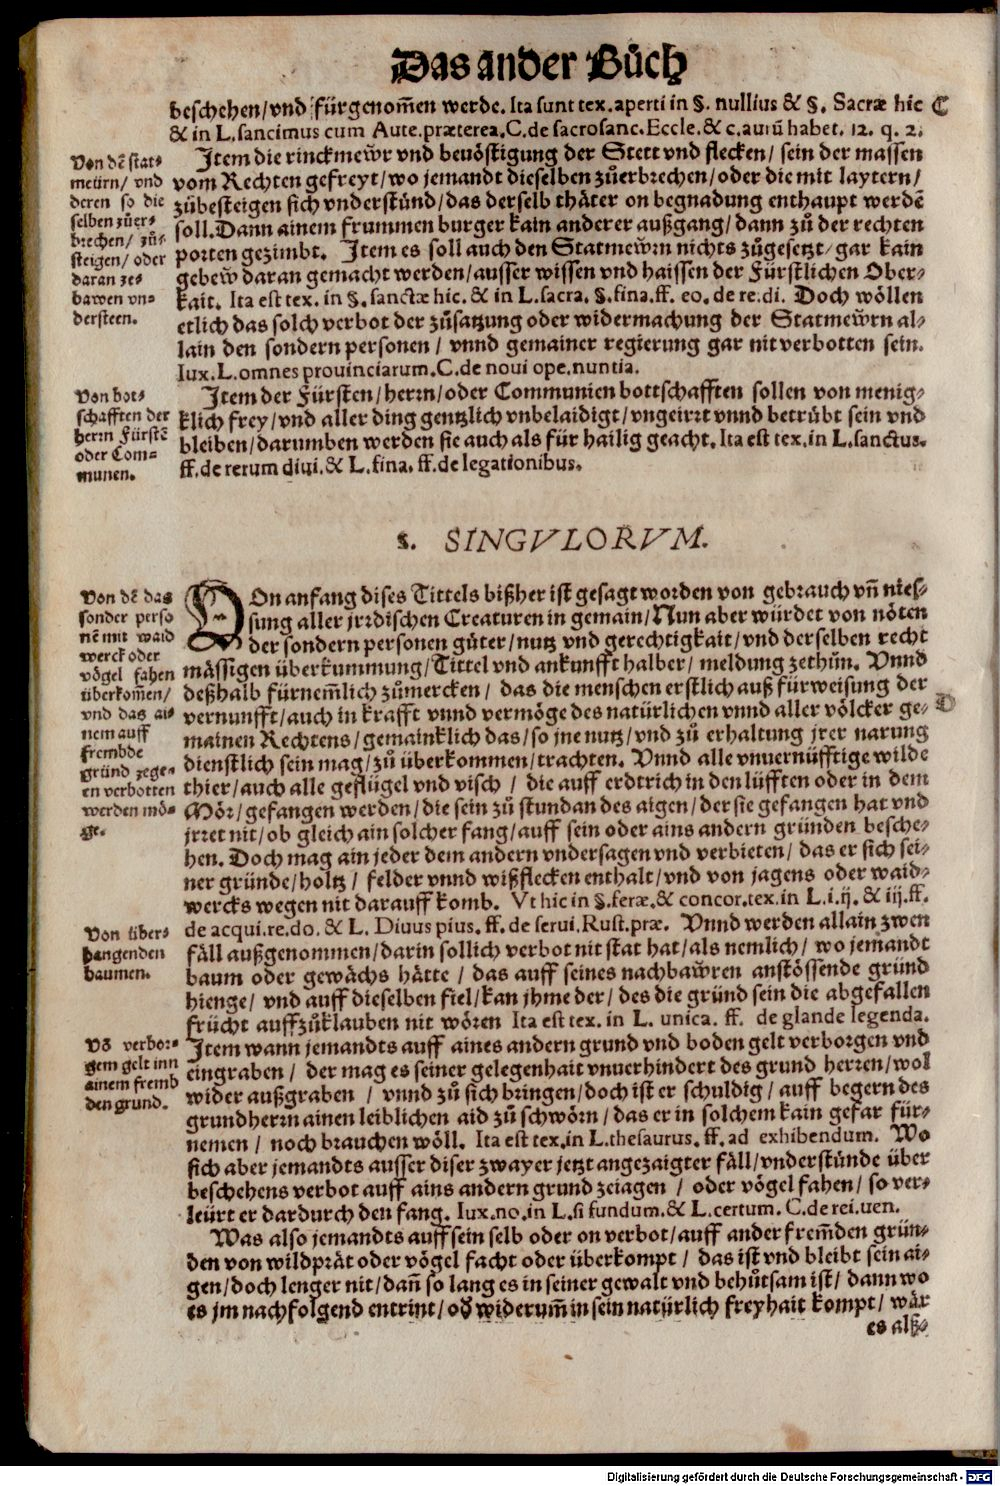 Das ander Bůch
beschehen/vnd fürgenom̃en werde. Ita sunt tex. aperti in §. nullius & §. Sacræ hic
C
& in L. sancimus cum Aute. præterea. C. de sacrosanc. Eccle. & c. aurũ habet. 12. q. 2.
Von dẽ stat-
meürn/ vnd
deren so die
selben zůer-
brechen/ zů-
steigen/ oder
daran ze-
bawen vn-
dersteen.
Item die rinckmeẘr vnd beuöstigung der Stett vnd flecken/ sein der massen
vom Rechten gefreyt/wo jemandt dieselben zůerbrechen/oder die mit laytern/
zůbesteigen sich vnderstůnd/das derselb thäter on begnadung enthaupt werdẽ
soll. Dann ainem frummen burger kain anderer außgang/dann zů der rechten
porten gezimbt. Item es soll auch den Statmeẘrn nichts zůgesetzt/gar kain
gebeẘ daran gemacht werden/ausser wissen vnd haissen der Fürstlichen Ober-
kait. Ita est tex. in §. sanctæ hic. & in L. sacra. §. fina. ff. eo. de re. di. Doch wöllen
etlich das solch verbot der zůsatzung oder widermachung der Statmeẘrn al-
lain den sondern personen/ vnnd gemainer regierung gar nit verbotten sein.
Iux. L. omnes prouinciarum. C. de noui ope. nuntia.
Von bot-
schafften der
herrn Fürstẽ
oder Com-
munen.
Item der Fürsten/herrn/oder Communien bottschafften sollen von menig-
klich frey/vnd aller ding gentzlich vnbelaidigt/vngeirrt vnnd betrůbt sein vnd
bleiben/darumben werden sie auch als für hailig geacht. Ita est tex. in L. sanctus.
ff. de rerum diui. & L. fina. ff. de legationibus.
§. SINGVLORVM.
Von dẽ das
sonder perso
nẽ mit waid
werck oder
vögel fahen
überkom̃en/
vnd das ai-
nem auff
frembde
gründ zege-
en verbotten
werden mö-
ge.
VOn anfang dises Tittels bißher ist gesagt worden von gebrauch vñ nies-
sung aller jrrdischen Creaturen in gemain/Nun aber würdet von nöten
der sondern personen güter/nutz vnd gerechtigkait/vnd derselben recht
mässigen überkummung/Tittel vnd ankunfft halber/ meldung zethůn. Vnnd
deßhalb fürnem̃lich zůmercken/ das die menschen erstlich auß fürweisung der
vernunfft/auch in krafft vnnd vermöge des natürlichen vnnd aller völcker ge-
D
mainen Rechtens/gemainklich das/so jne nutz/vnd zů erhaltung jrer narung
dienstlich sein mag/zů überkommen/trachten. Vnnd alle vnuernüfftige wilde
thier/auch alle geflügel vnd visch/ die auff erdtrich in den lüfften oder in dem
Mör/gefangen werden/die sein zů stund an des aigen/der sie gefangen hat vnd
jrret nit/ob gleich ain solcher fang/auff sein oder ains andern gründen besche-
hen. Doch mag ain jeder dem andern vndersagen vnd verbieten/ das er sich sei-
ner gründe/holtz/ felder vnnd wißflecken enthalt/vnd von jagens oder waid-
wercks wegen nit darauff komb. Vt hic in §. feræ. & concor. tex. in L. i. ij. & iij. ff.
de acqui. re. do. & L. Diuus pius. ff. de serui. Rust. præ. Vnnd werden allain zwen
Von über-
hangenden
baumen.
fäll außgenommen/darin sollich verbot nit stat hat/als nemlich/ wo jemandt
baum oder gewächs hätte/ das auff seines nachbaẘren anstössende gründ
hienge/ vnd auff dieselben fiel/kan jhme der/des die gründ sein die abgefallen
frücht auffzůklauben nit wören Ita est tex. in L. vnica. ff. de glande legenda.
Võ verbor-
gem gelt inn
ainem fremb
den grund.
Item wann jemandts auff aines andern grund vnd boden gelt verborgen vnd
eingraben/ der mag es seiner gelegenhait vnuerhindert des grund herren/wol
wider außgraben/ vnnd zů sich bringen/doch ist er schuldig/ auff begern des
grundherrn ainen leiblichen aid zů schwörn/das er in solchem kain gefar für-
nemen/ noch brauchen wöll. Ita est tex. in L. thesaurus. ff. ad exhibendum. Wo
sich aber jemandts ausser diser zwayer jetzt angezaigter fäll/vnderstünde über
beschehens verbot auff ains andern grund zeiagen/ oder vögel fahen/ so ver-
leürt er dardurch den fang. Iux. no. in L. si fundum. & L. certum. C. de rei. uen.
Was also jemandts auff sein selb oder on verbot/auff ander frem̃den grün-
den von wildprät oder vögel facht oder überkompt/ das ist vnd bleibt sein ai-
gen/doch lenger nit/dañ so lang es in seiner gewalt vnd behůtsam ist/ dann wo
es jm nachfolgend entrint/oď widerum̃ in sein natürlich freyhait kompt/ wär
es alß-
Digitalisierung gefördert durch die Deutsche Forschungsgemeinschaft - DFG